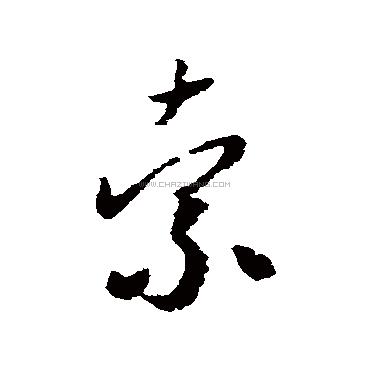 索
WWW.CHAZIDIAN.COM